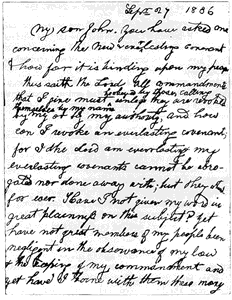 Sept 27 1886
My son John. You have asked me
concerning the New & everlasting covenant
& how far it is binding upon my people
thus saith the Lord all commandments
that I give must be obeyed by those calling
themselves by my name unless they are revoked
by me or by my authority and how
can I revoke an everlasting covenant;
for I the Lord am everlasting & my
everlasting covenants cannot be abro-
gated nor done away with; but they stand
for ever. Have I not given my word in
great plainness on this subject? Yet
have not great numbers of my people been
negligent in the observance of my law
& the keeping of my commandment and
yet have I borne with them these many